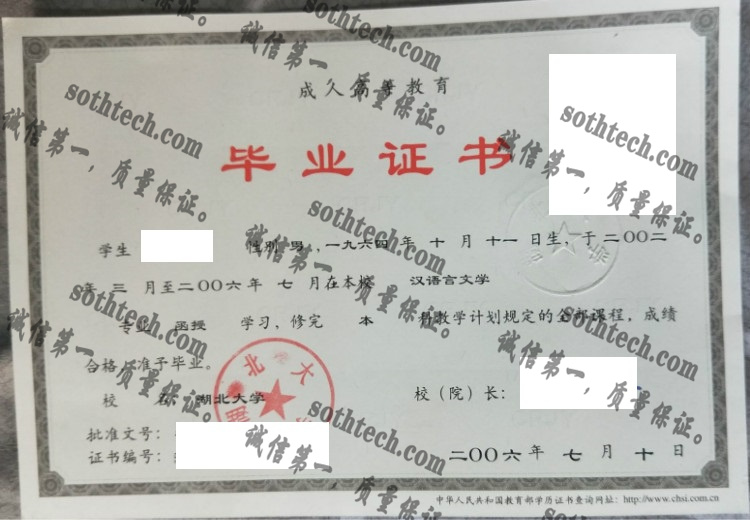 成人高等教育
毕业证书
学生 性别 男 ，一九六四 年 十 月 十一 日生，于 二〇〇二
年 三 月至 二〇〇六 年 七 月在本校 汉语言文学
专业 函授 学习，修完 本 科教学计划规定的全部课程，成绩
合格，准予毕业。
校 名 湖北大学
校（院）长：
批准文号：
证书编号：
二〇〇六 年 七 月 十 日
中华人民共和国教育部学历证书查询网址：http://www.chsi.com.cn
北 大
sothtech.com
诚信第一，质量保证。
sothtech.com
诚信第一，质量保证。
sothtech.com
诚信第一，质量保证。
sothtech.com
诚信第一，质量保证。
sothtech.com
诚信第一，质量保证。
sothtech.com
诚信第一，质量保证。
sothtech.com
诚信第一，质量保证。
sothtech.com
诚信第一，质量保证。